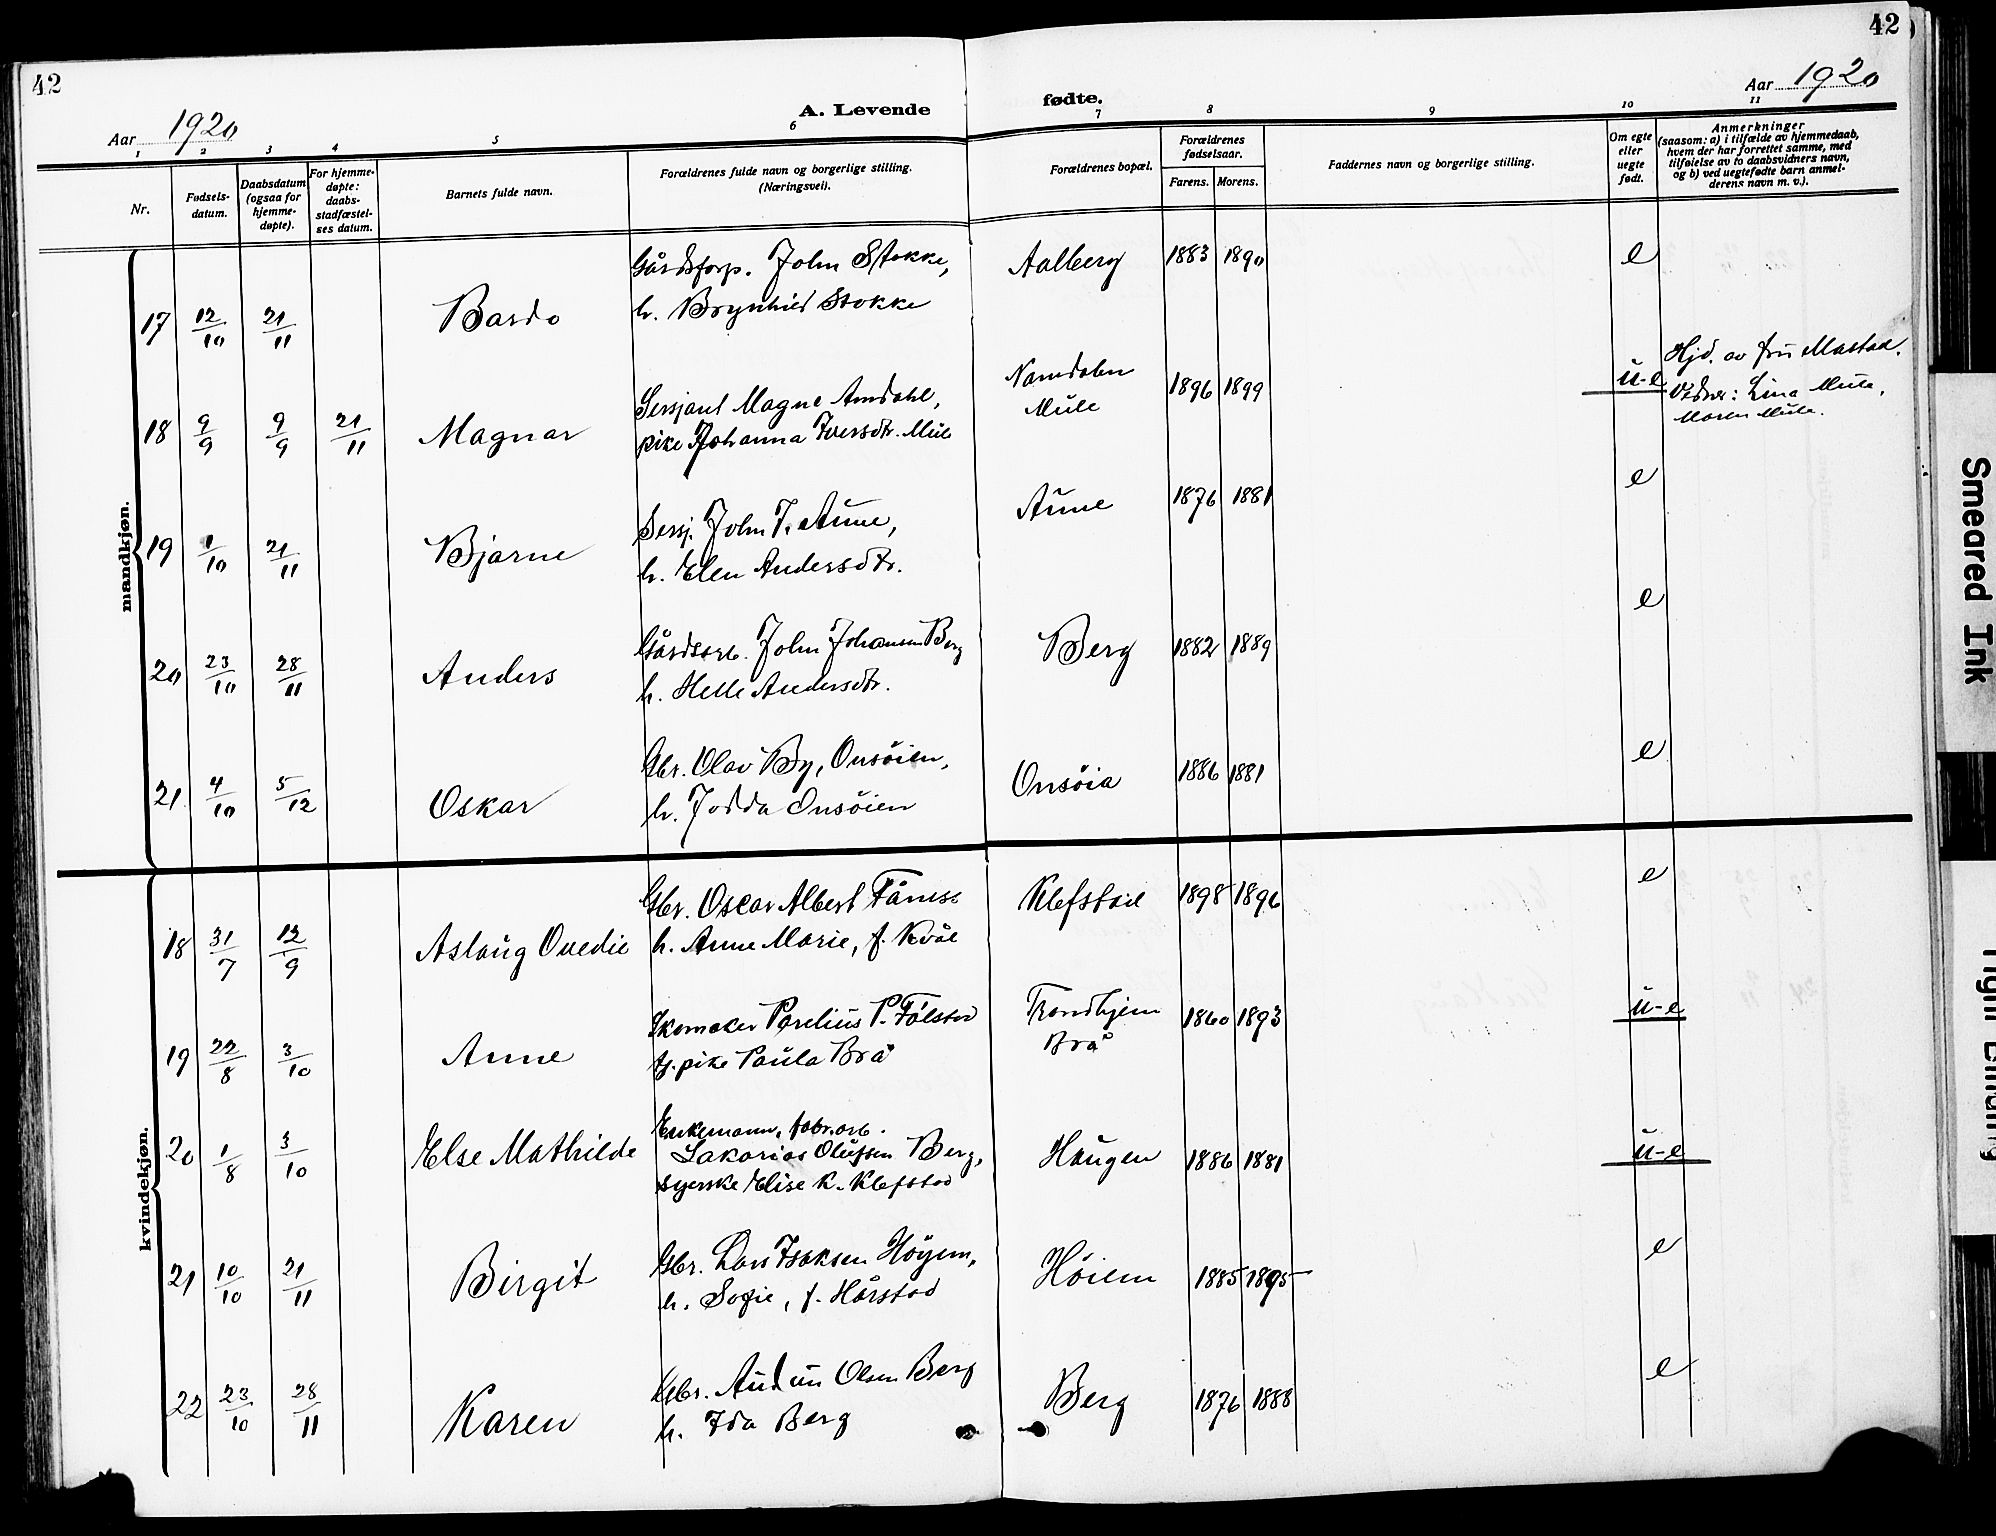 42
42
Aar 1920
A. Levende
fødte.
Aar 1920
1 2 3 4 5 6 7 8 9 10 11
Nr.
Fødsels-
datum.
Daabsdatum
(ogsaa for
hjemme-
døpte).
For hjemme-
døpte:
daabs-
stadfæstel-
ses datum.
Barnets fulde navn.
Forældrenes fulde navn og borgerlige stilling.
(Næringsvei).
Forældrenes bopæl.
Forældrenes
fødselsaar.
Farens. Morens.
Faddernes navn og borgerlige stilling.
Om egte
eller
uegte
født.
Anmerkninger
(saasom: a) i tilfælde av hjemmedaab,
hvem der har forrettet samme, med
tilføielse av to daabsvidners navn,
og b) ved uegtefødte barn anmel-
derens navn m. v.).
mandkjøn.
Gårdsforp. John Stokke, Aalberg 1883 1890 e
17 12/10 21/11 Bardo h. Brynhild Stokke
Hjd. av fru Mastad.
Sersjant Magne Amdahl, Namdalen 1896 1899 u-e
Mule
Vidner: Lina Mule,
Maren Mule.
18 9/9 9/9 21/11 Magnar pike Johanna Iversdtr. Mule
Sersj. John T. Aune, Aune 1876 1881 e
19 1/10 21/11 Bjarne h. Elen Andersdtr.
Gårdsarb. John Johansen Berg Berg 1882 1889 e
20 23/10 28/11 Anders h. Helle Andersdtr.
Gbr. Olav By, Onsöien, Onsöia 1886 1881 e
21 4/10 5/12 Oskar h. Jodda Onsöien
kvindekjøn.
Gbr. Oscar Albert Klefstad 1898 1896 e
18 31/7 12/9 Aslaug Ovedie h. Anne Marie, f. Kvål
Skomaker Parelius P. Tölstad Trondhjem 1860 1893 u-e
Brå
19 22/8 3/10 Anne pike Paula Brå
Enkemann, fabr.arb.
20 1/8 3/10 Else Mathilde Sakarias Olufsen Berg, Haugen 1886 1881 u-e
syerske Elise K. Klefstad
Gbr. Lars Isaksen Höyem, Höiem 1885 1895 e
21 10/10 21/11 Birgit h. Sofie, f. Hårstad
Gbr. Audun Olsen Berg Berg 1876 1888 e
22 23/10 28/11 Karen h. Ida Berg
Smeared Ink
Tight Binding